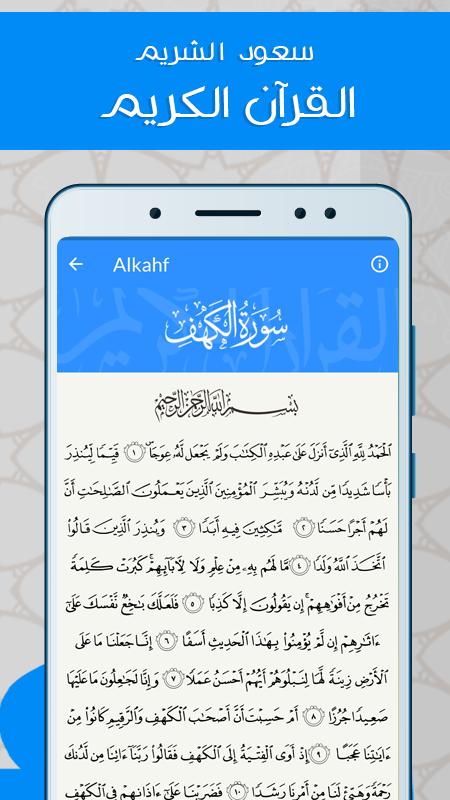 سعود الشريم
القرآن الكريم
Alkahf
سُورَةُ الكَهْفِ
بِسْمِ اللَّهِ الرَّحْمَٰنِ الرَّحِيمِ
الْحَمْدُ لِلَّهِ الَّذِي أَنزَلَ عَلَىٰ عَبْدِهِ الْكِتَابَ وَلَمْ يَجْعَل لَّهُ عِوَجًا ۜ ١ قَيِّمًا لِّيُنذِرَ
بَأْسًا شَدِيدًا مِّن لَّدُنْهُ وَيُبَشِّرَ الْمُؤْمِنِينَ الَّذِينَ يَعْمَلُونَ الصَّالِحَاتِ أَنَّ
لَهُمْ أَجْرًا حَسَنًا ٢ مَّاكِثِينَ فِيهِ أَبَدًا ٣ وَيُنذِرَ الَّذِينَ قَالُوا
اتَّخَذَ اللَّهُ وَلَدًا ٤ مَّا لَهُم بِهِ مِنْ عِلْمٍ وَلَا لِآبَائِهِمْ ۚ كَبُرَتْ كَلِمَةً
تَخْرُجُ مِنْ أَفْوَاهِهِمْ ۚ إِن يَقُولُونَ إِلَّا كَذِبًا ٥ فَلَعَلَّكَ بَاخِعٌ نَّفْسَكَ عَلَىٰ
ءَاثَارِهِمْ إِن لَّمْ يُؤْمِنُوا بِهَٰذَا الْحَدِيثِ أَسَفًا ٦ إِنَّا جَعَلْنَا مَا عَلَى
الْأَرْضِ زِينَةً لَّهَا لِنَبْلُوَهُمْ أَيُّهُمْ أَحْسَنُ عَمَلًا ٧ وَإِنَّا لَجَاعِلُونَ مَا عَلَيْهَا
صَعِيدًا جُرُزًا ٨ أَمْ حَسِبْتَ أَنَّ أَصْحَابَ الْكَهْفِ وَالرَّقِيمِ كَانُوا مِنْ
ءَايَاتِنَا عَجَبًا ٩ إِذْ أَوَى الْفِتْيَةُ إِلَى الْكَهْفِ فَقَالُوا رَبَّنَا ءَاتِنَا مِن لَّدُنكَ
رَحْمَةً وَهَيِّئْ لَنَا مِنْ أَمْرِنَا رَشَدًا ١٠ فَضَرَبْنَا عَلَىٰ ءَاذَانِهِمْ فِي الْكَهْفِ